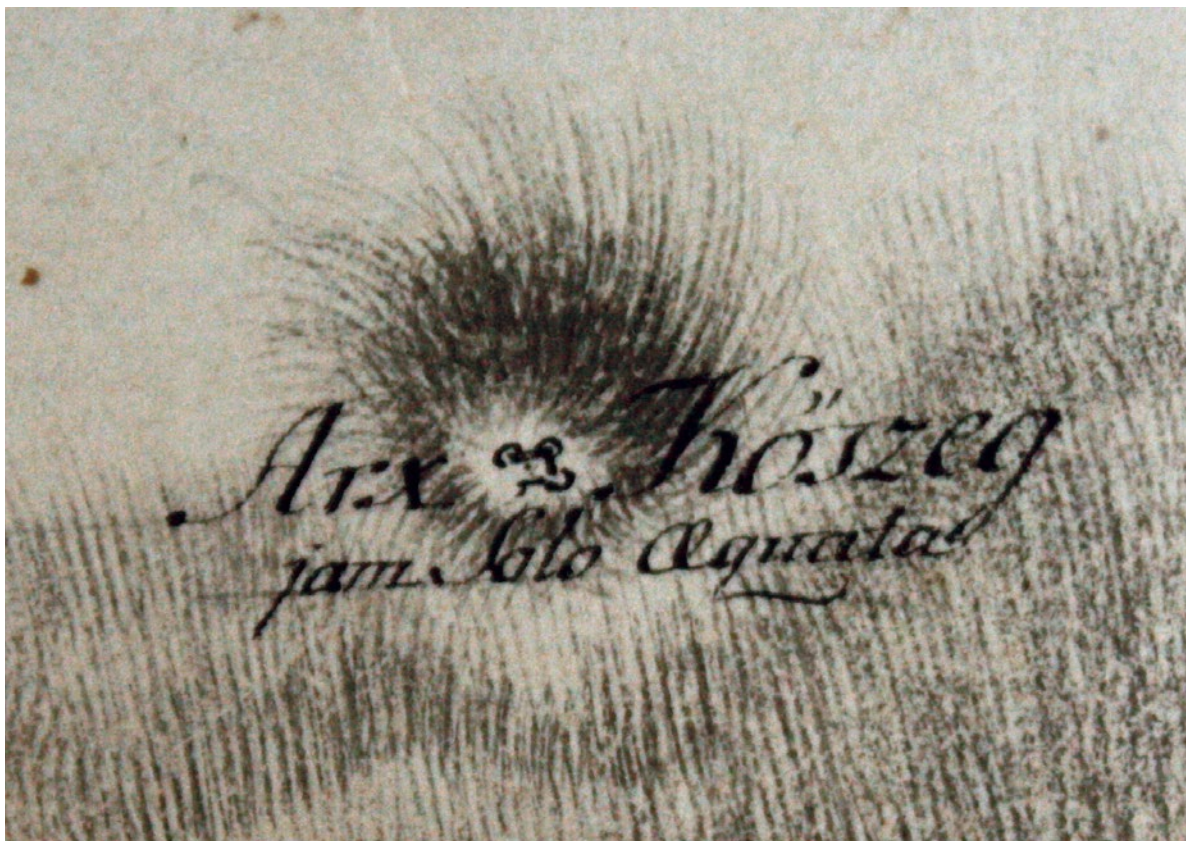 Arx Kőszeg
jam Solo Æquata